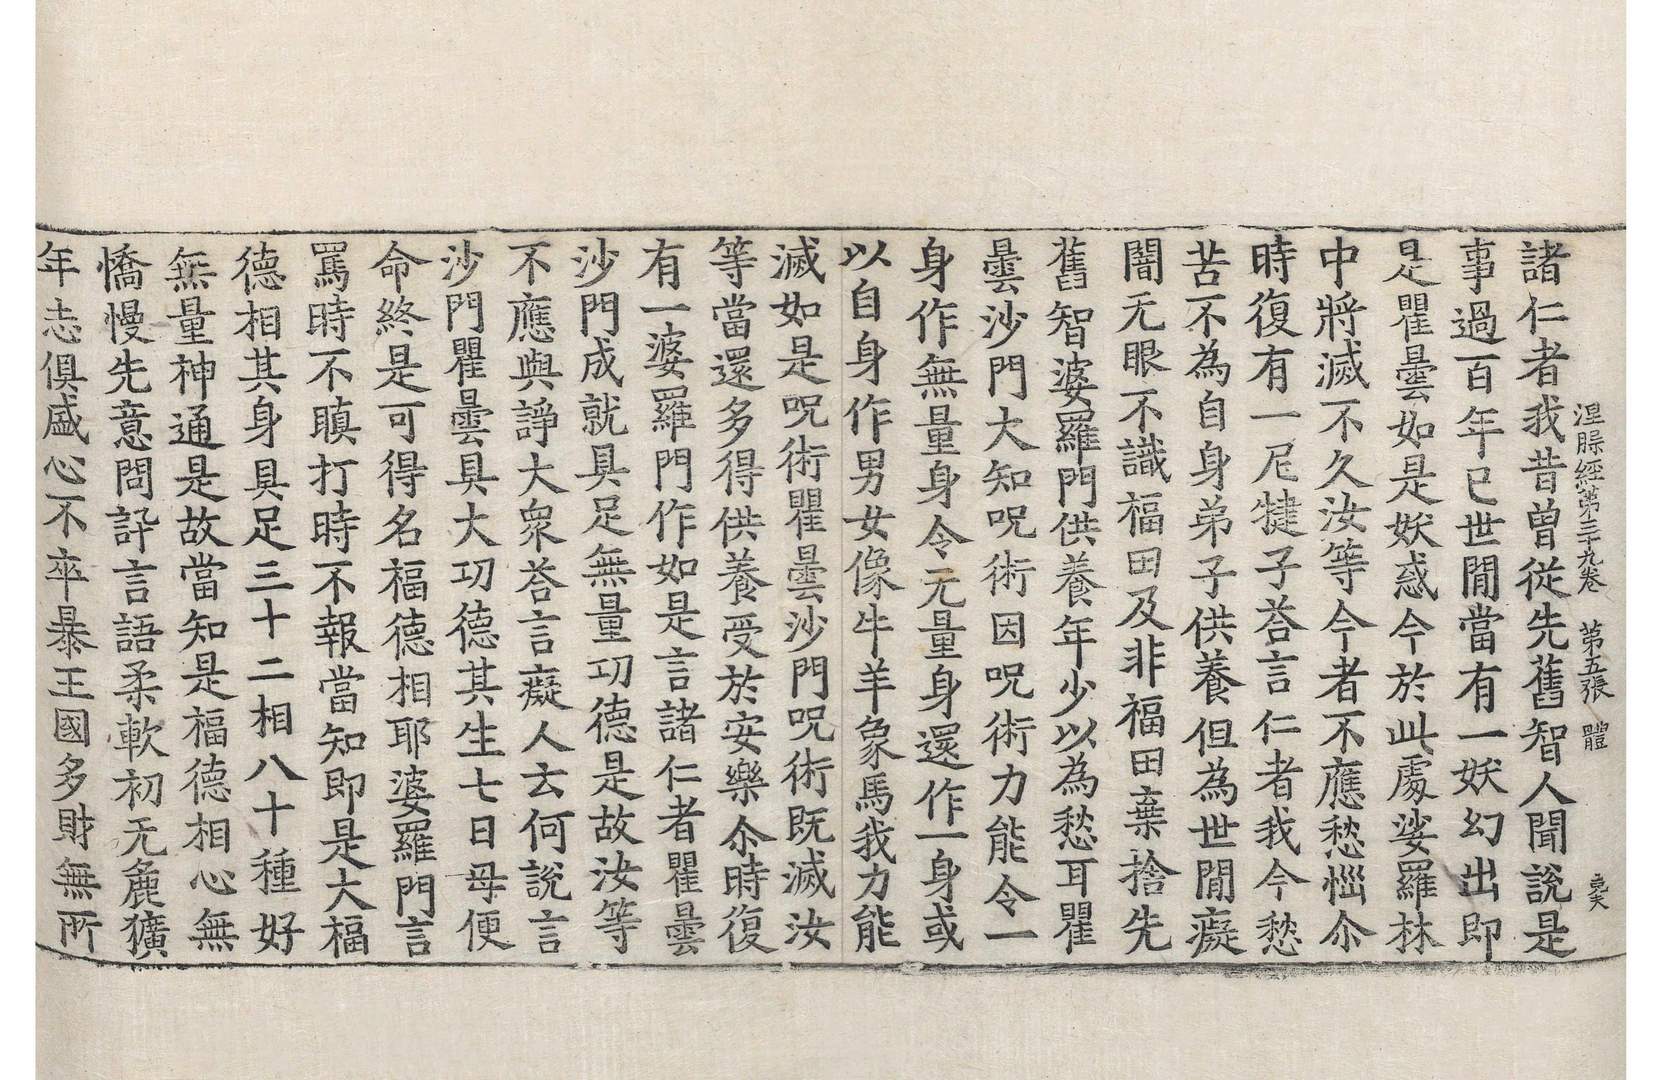 涅槃經第三十九卷　第五張　體
諸仁者我昔曾從先舊智人聞說是
事過百年已世閒當有一妖幻出即
是瞿曇如是妖惑今於此處娑羅林
中將滅不久汝等今者不應愁惱尒
時復有一尼犍子荅言仁者我今愁
苦不為自身弟子供養但為世閒癡
闇无眼不識福田及非福田棄捨先
舊智婆羅門供養年少以為愁耳瞿
曇沙門大知呪術因呪術力能令一
身作無量身令无量身還作一身或
以自身作男女像牛羊象馬我力能
滅如是呪術瞿曇沙門呪術既滅汝
等當還多得供養受於安樂尒時復
有一婆羅門作如是言諸仁者瞿曇
沙門成就具足無量功德是故汝等
不應與諍大衆荅言癡人云何說言
沙門瞿曇具大功德其生七日母便
命終是可得名福德相耶婆羅門言
罵時不瞋打時不報當知即是大福
德相其身具足三十二相八十種好
無量神通是故當知是福德相心無
憍慢先意問訊言語柔軟初无麁獷
年志俱盛心不卒暴王國多財無所